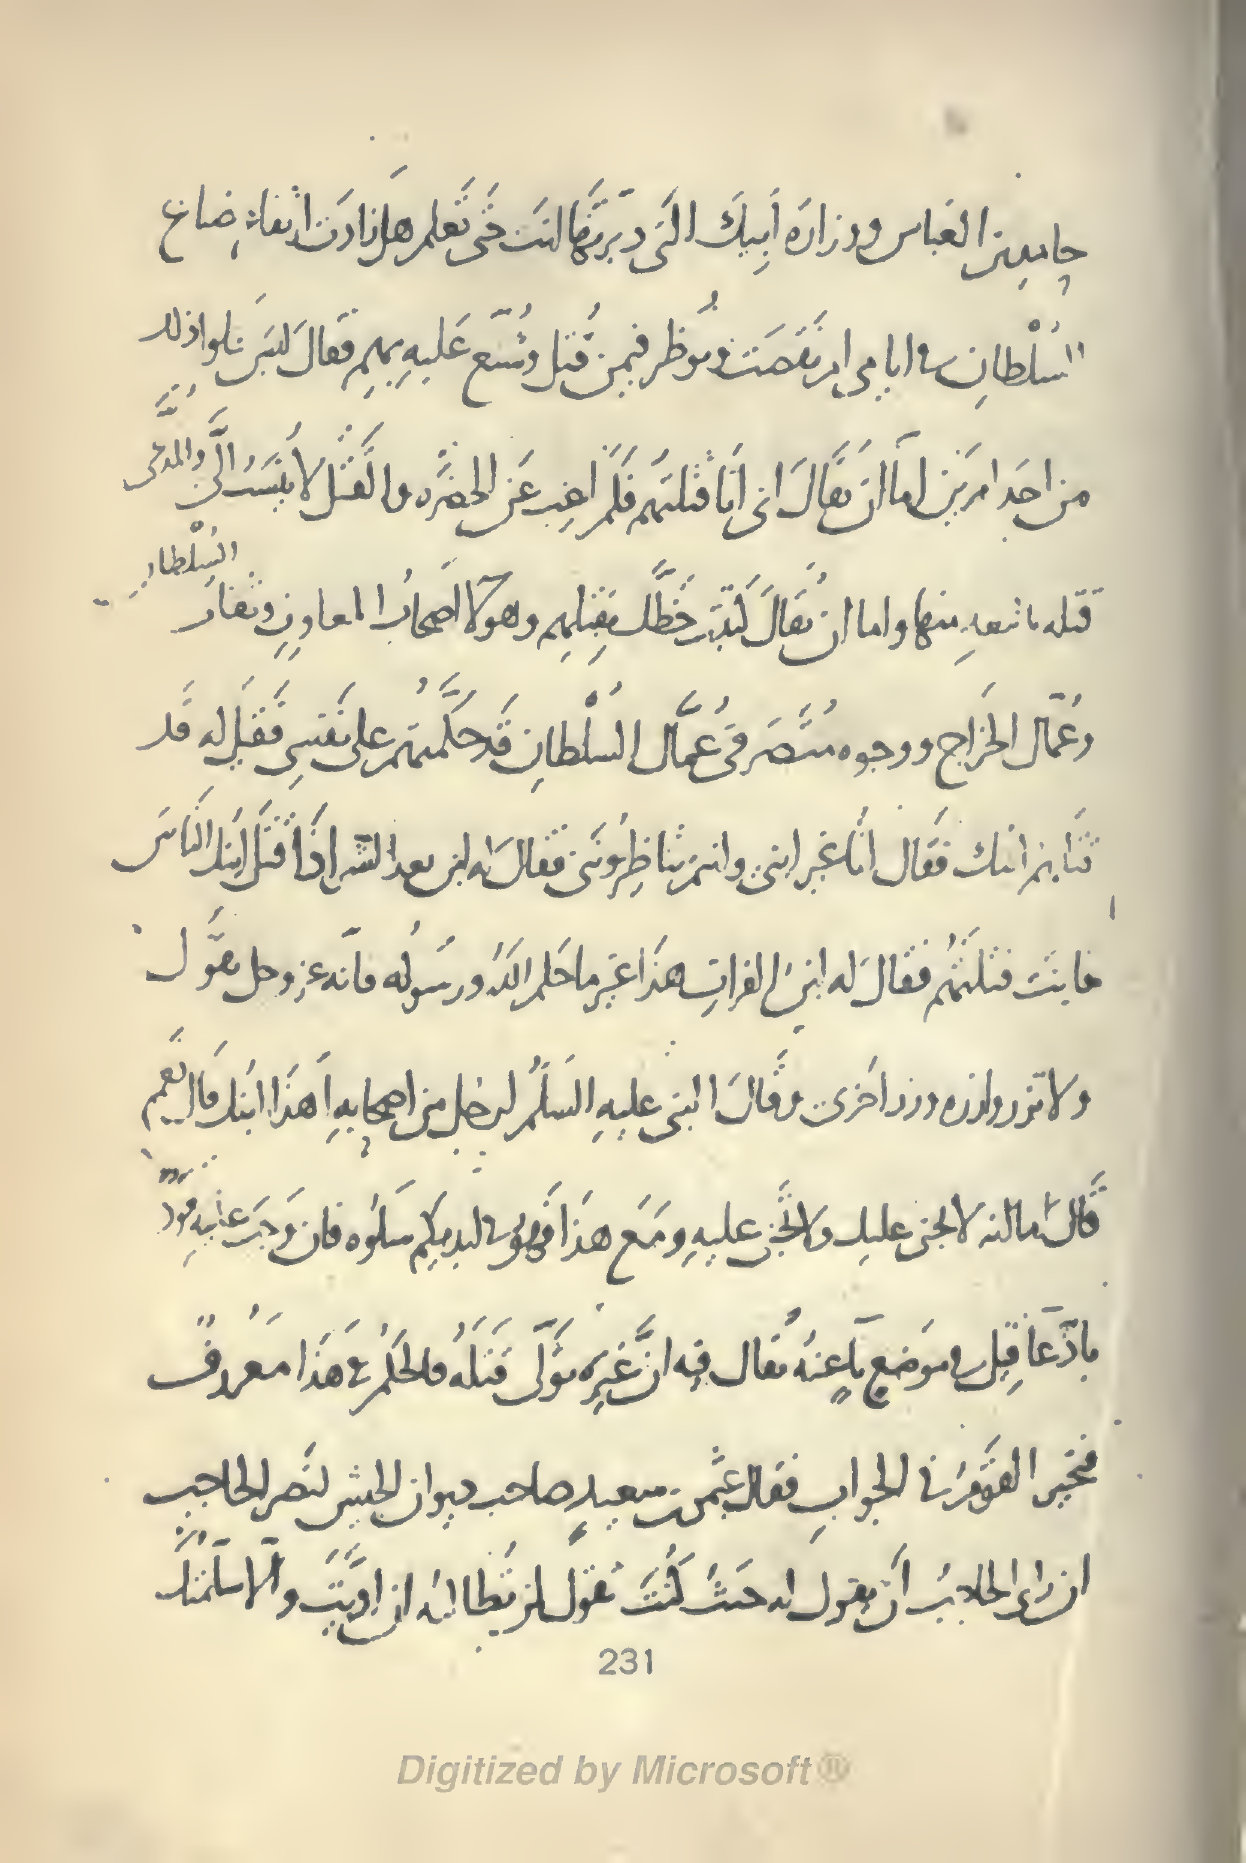 حامد بن العباس ووزارة أبيك التي دبرتها أنت حتى تعلم هل زادت ارتفاع ضياع
السلطان في ايامي ام نقصت ونوظر فيمن قتل وشنع عليه بهم فقال ليس تخلوا
من احد امرين اما ان يقال اني انا قتلتهم فلم اغب عن الحضرة والقتل لا ينسب الي والمدعى
قتله
منها واما ان يقال كتبت خطك بقتلهم وهولآء اصحاب المعاون وثقات السلطان
وعمال الخراج ووجوه متصرفي عمال السلطان قد حكمتهم على نفسي فقيل له قد
قتلهم ابنك فقال انا غير ابني وانتم تناظرونني فقال له ابن بعد الشر اذا قتل ابنك الناس
فانت قتلتهم فقال له ابن الفرات هذا غير ما حكم الله ورسوله فانه عز وجل يقول
ولا تزر وازرة وزر اخرى وقال النبي عليه السلم لرجل من اصحابه أهذا ابنك قال نعم
قال اما انه لا يجني عليك ولا تجني عليه ومع هذا فهو في ايديكم سلوه فان وجب عليه قود
بادعا قتل في موضع ناء عنه يقال فيه ان غيره تولى قتله فالحكم في هذا معروف
فتحير القوم في الجواب فقال عثمن بن سعيد صاحب ديوان الجيش لنصر الحاجب
ان رأى الحاجب أن يقول له حيث كنت تقول لمن تطالبه ان اديت والا سلمتك
231
Digitized by Microsoft®